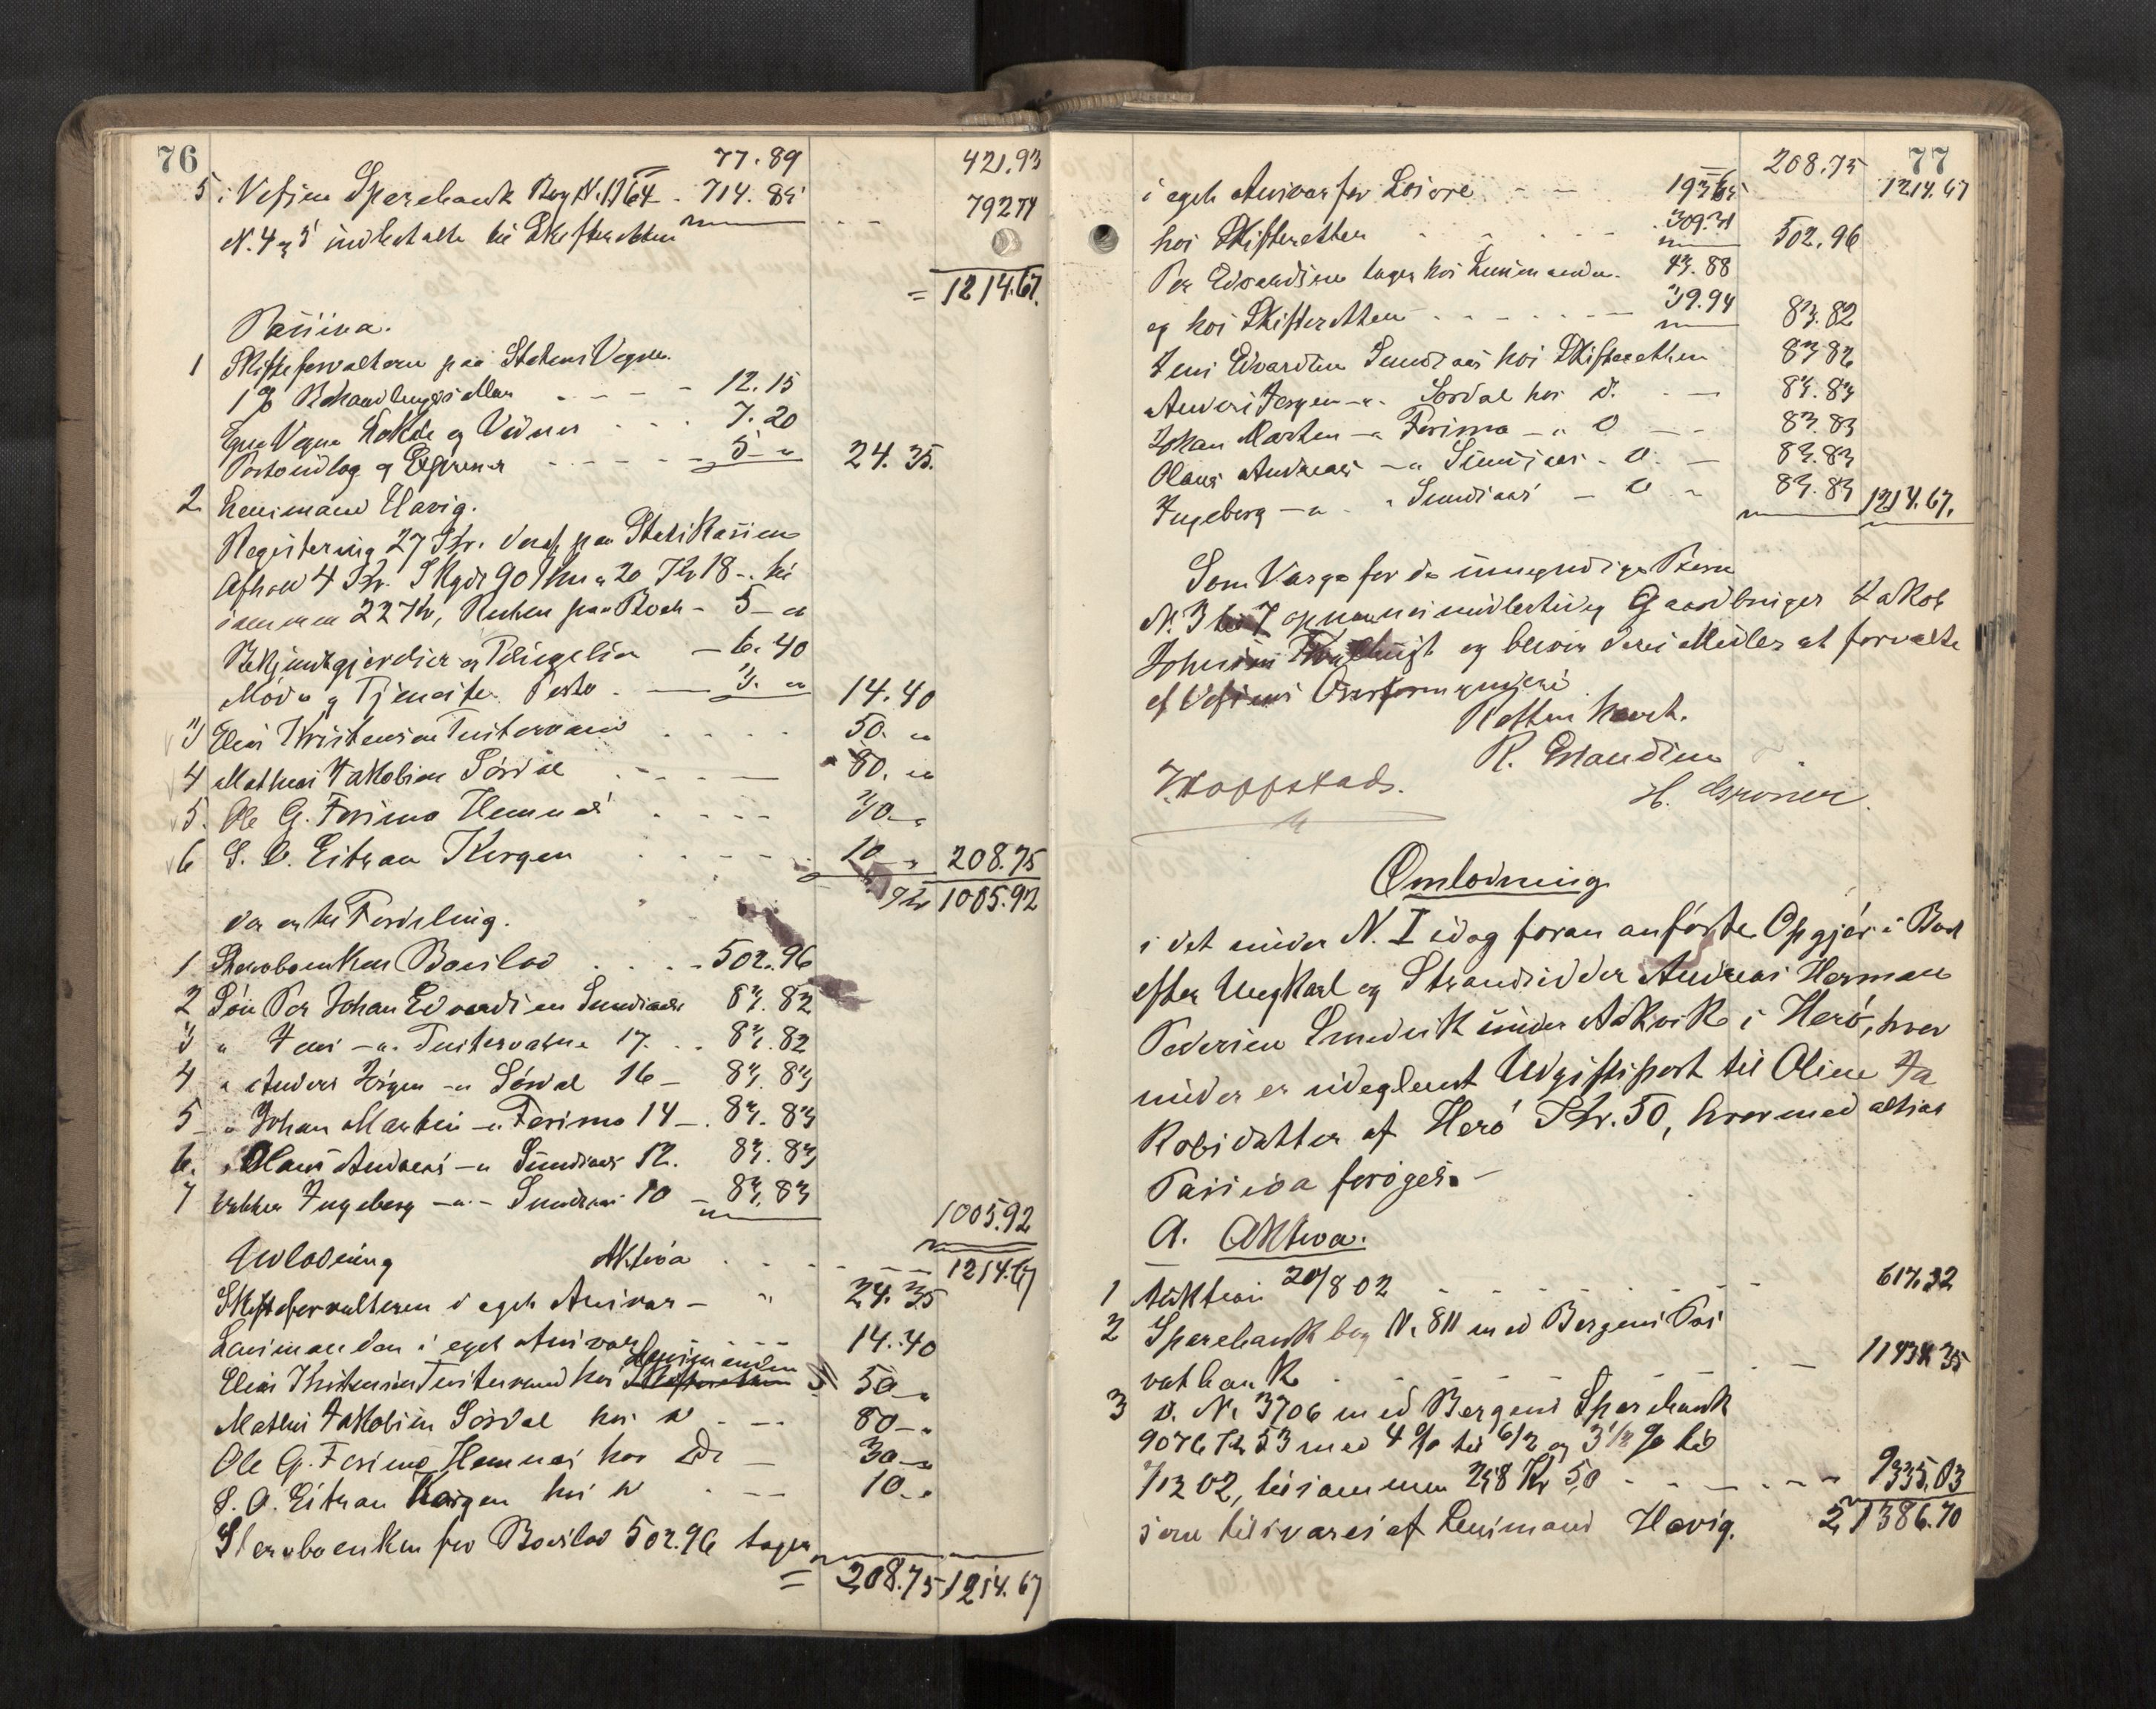 76 77.89 421.93
5. i Vefsen Sparebank Bog N. 1764 - 714.85 792.74
N. 4 og 5 indbetalte til Skifteretten
= 1214.67.
Passiva.
1 Skifteforvalteren paa Statens Vegne.
1 % Behandlings - - - 12.15
Egne Vegne og Vidner - - - 7.20
Portoudlæg og - - - 5 - " 24.35.
2 Lensmand Havig.
Registering 27 Kr. deraf paa StatsKassen
4 Kr. Skyds 90 20 Kr 18 - til
sammen 22 Kr, Resten paa Boet - 5 - "
Bekjendtgjørelser - 6.40
Møde og Tjeneste. Porto - 3. " 14.40
3 Elias Kristensen Tustervand - - - 50. "
4 Mathias Jakobsen Sørdal - - - 80. "
5. Ole G. Forsmo Hemnes - - - 30 - "
6 S. O. Eitran Korgen - - - 10 - " 208.75
Kr 1005.92
der er til Fordeling.
1 Sterboenken Boeslod - - - 502.96
2 Søn Per Johan Edvardsen Sundsaas 83.82
3 " Jens - " - Tustervatne 17. - - 83.82
4 " Anders Jørgen - " Sørdal 16 - 83.83
5 - " Johan Martin - " Forsmo 14 - 83.83
6. " Olaus Andreas - " Sundsaas 12. 83.83
7 Datter Ingeborg - " - Sundsaas 10 - 83.83
1005.92
Udlodning Aktiva - - - 1214.67
Skifteforvalteren i eget Ansvar - " 24.35
Lensmanden i eget Ansvar - - - 14.40
Lensmanden
Elias Kristensen Tustervand hos Skifteretten 50 - "
Mathias Jakobsen Sørdal hos d - - - 80 - "
Ole G. Forsmo Hemnes hos Do - 30 - "
S. O. Eitran Korgen hos d - - - 10 - "
Sterboenken for Boeslod 502.96 tager
= 208.75 1214.67
77
208.75 1214.67
i eget Ansvar for Løsøre - - 193.65
hos Skifteretten - - - 309.31 502.96
Per Edvardsen tager hos Lensmanden. 43.88
og hos Skifteretten - - - 39.94 83.82
Jens Edvardsen Sundsaas hos Skifteretten 83.82
Anders Jørgen - " - Sørdal hos d. - - 83.83
Johan Martin - " Forsmo - " d - - 83.83
Olaus Andreas - " Sundsaas - d. - 83.83
Ingeborg - " - " Sundsaas - d - 83.83 1214.67.
Som Værge for de umyndige Børn
N. 3 til 7 opnævnes midlertidig Gaardbruger Jakob
Johnsen og blever deres Midler at forvalte
af Vefsens Overformynderi.
Retten hævet.
R. Erlandsen
J. Hoppstad. H. Grøner.
Omlodning
i det under N. I idag foran anførte Opgjør i Boet
efter Ungkarl og Strandsidder Andreas Herman
Pedersen under i Herø, hvor
under er udeglemt Udgiftspost til Oline Ja
kobsdatter af Herø Kr. 50, hvormed altsaa
Passiva forøges. -
A. Aktiva.
1 Auktion 20/8 02 - - - 617.32
2 Sparebankbog N. 811 med Bergens Pri
vatbank - - - 11434.35
3 d. N. 3706 med Bergens Sparebank
9076 Kr 53 med 4 % til 6/2 og 3 1/2 % til
7/12 02, tilsammen 258 Kr 50 - - - 9335.03
som tilsvares af Lensmand Havig. 21386.70